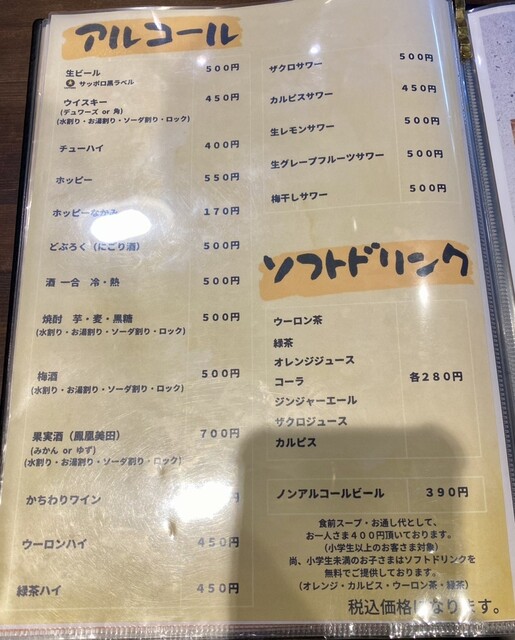 アルコール
生ビール 500円
サッポロ黒ラベル
ウイスキー 450円
(デュワーズ or 角)
(水割り・お湯割り・ソーダ割り・ロック)
チューハイ 400円
ホッピー 550円
ホッピーなかみ 170円
どぶろく（にごり酒） 500円
酒 一合 冷・熱 500円
焼酎 芋・麦・黒糖 500円
(水割り・お湯割り・ソーダ割り・ロック)
梅酒 500円
(水割り・お湯割り・ソーダ割り・ロック)
果実酒（鳳凰美田） 700円
(みかん or ゆず)
(水割り・お湯割り・ソーダ割り・ロック)
かちわりワイン 円
ウーロンハイ 450円
緑茶ハイ 450円
ザクロサワー 500円
カルピスサワー 450円
生レモンサワー 500円
生グレープフルーツサワー 500円
梅干しサワー 500円
ソフトドリンク
ウーロン茶
緑茶
オレンジジュース
コーラ 各280円
ジンジャーエール
ザクロジュース
カルピス
ノンアルコールビール 390円
食前スープ・お通し代として、
お一人さま400円頂いております。
(小学生以上のお客さま対象)
尚、小学生未満のお子さまはソフトドリンクを
無料でご提供しております。
(オレンジ・カルピス・ウーロン茶・緑茶)
税込価格になります。